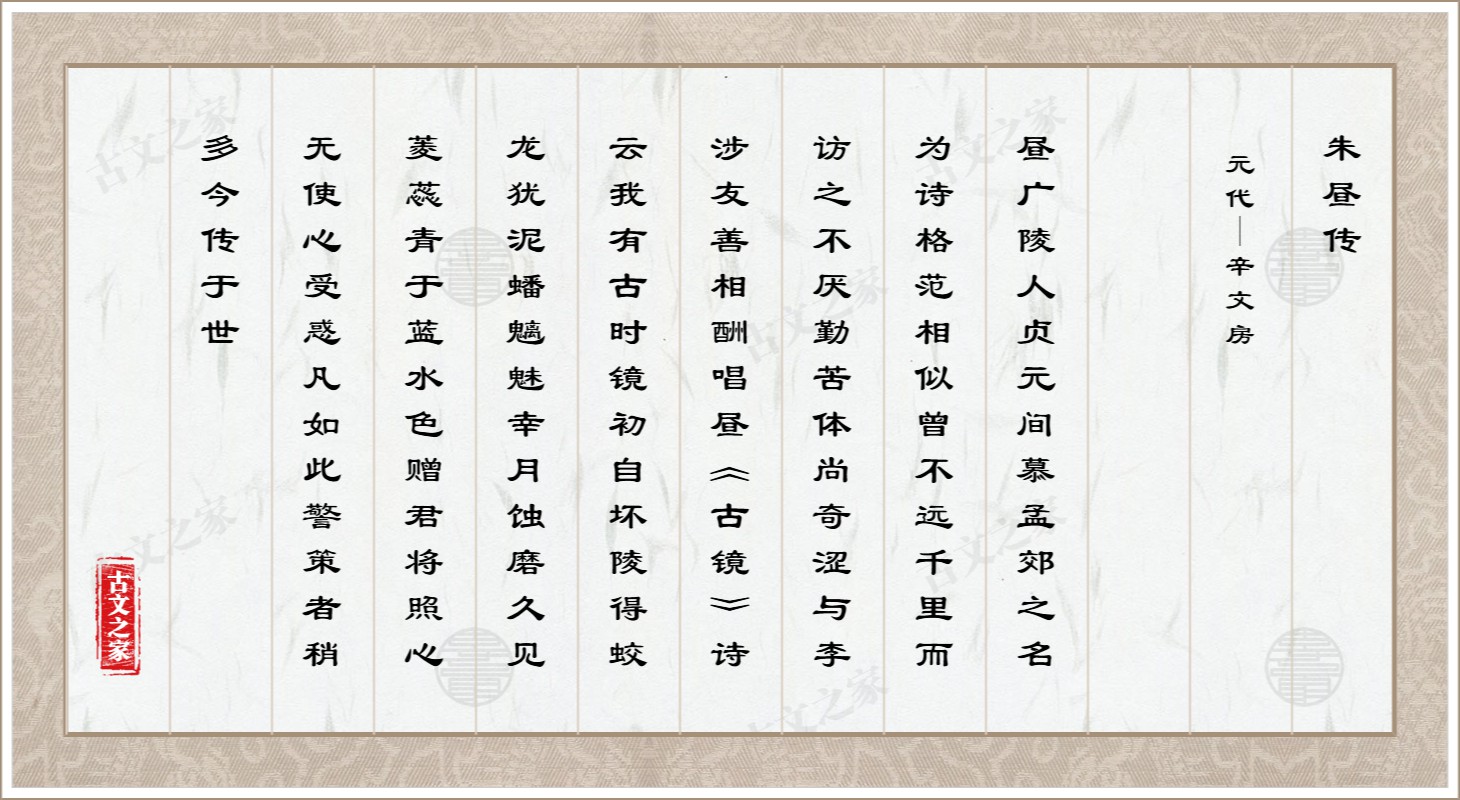 朱昼传
元代—辛文房
昼广陵人贞元间慕孟郊之名
为诗格范相似曾不远千里而
访之不厌勤苦体尚奇涩与李
涉友善相酬唱昼《古镜》诗
云我有古时镜初自坏陵得蛟
龙犹泥蟠魑魅幸月蚀磨久见
菱蕊青于蓝水色赠君将照心
无使心受惑凡如此警策者稍
多今传于世
古文之家